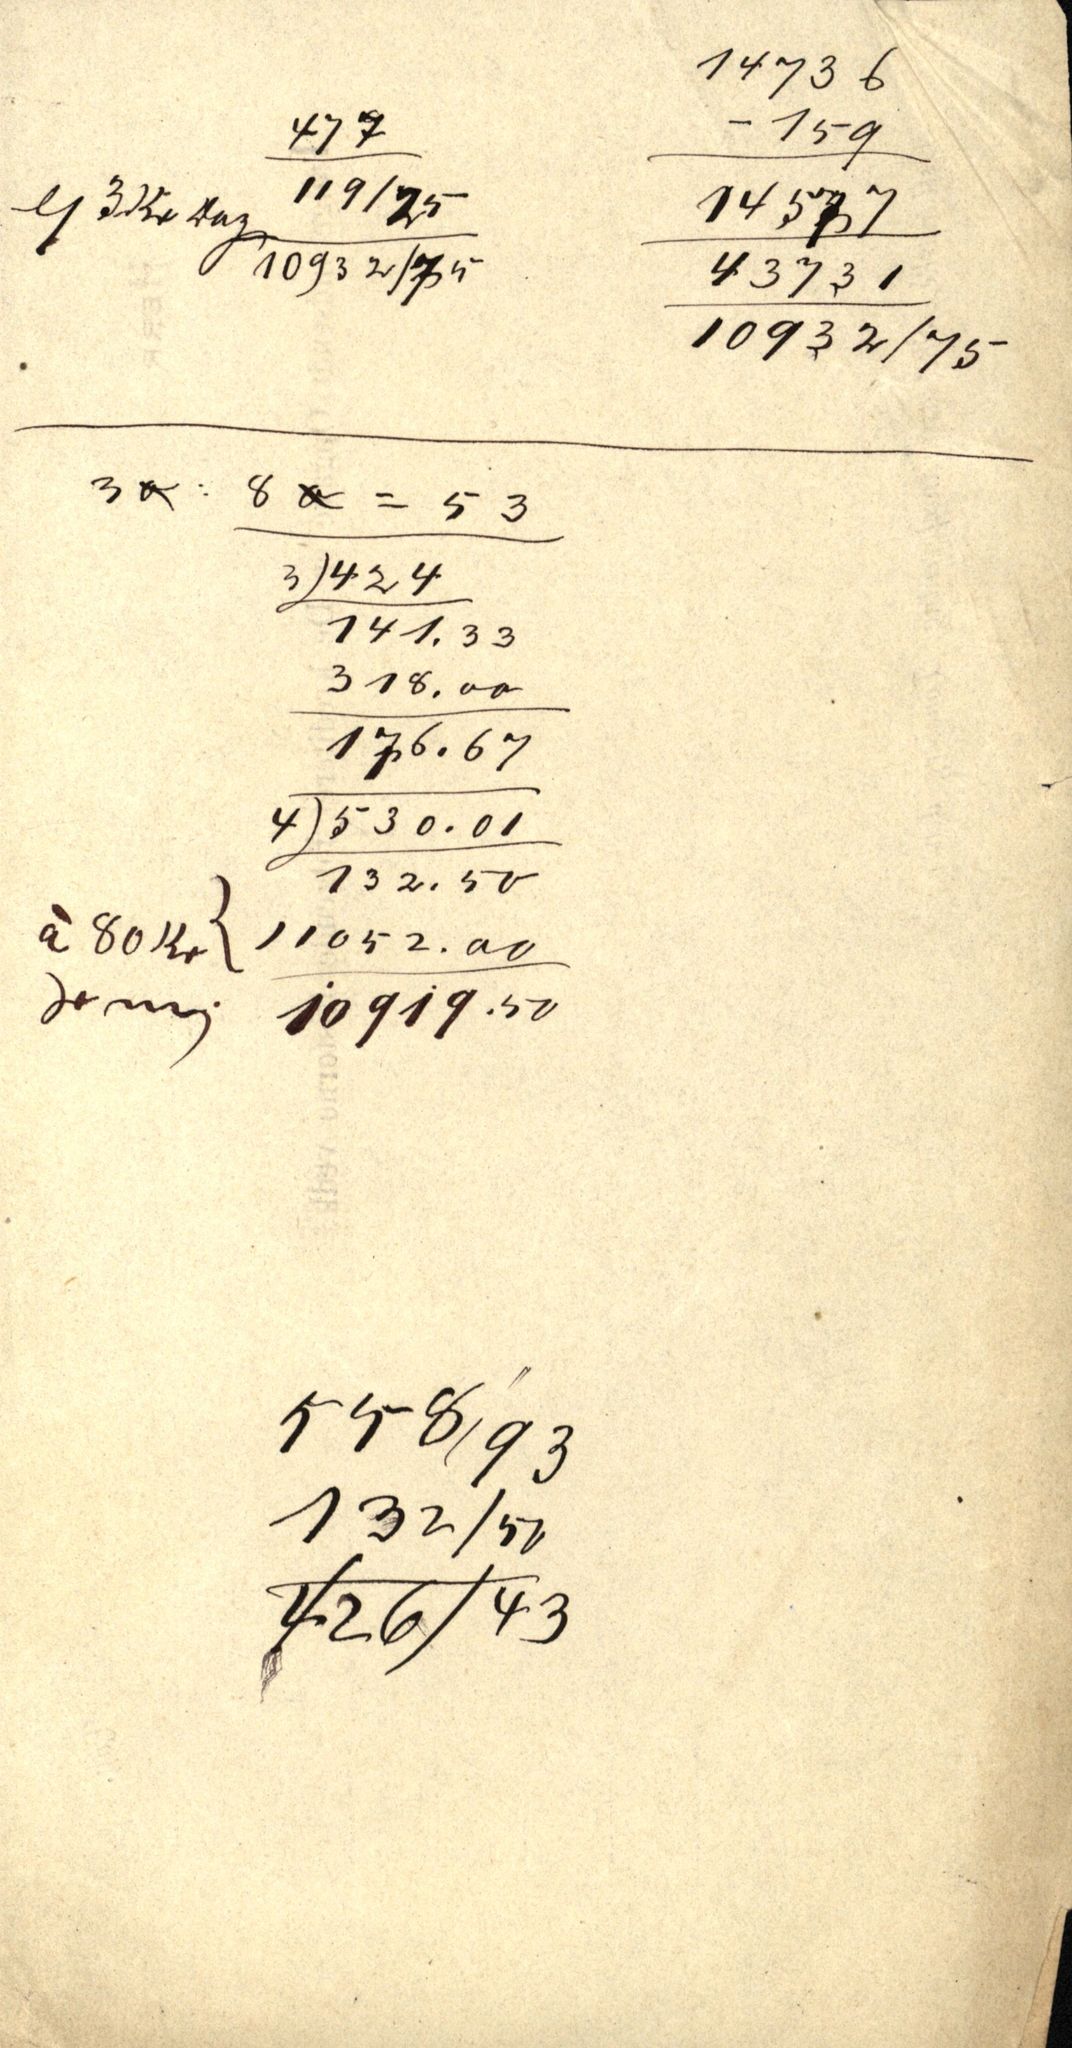 477
119/25
3 Kr
10932/75
14736
-159
14577
43731
10932/75
3 : 8 = 53
3)424
141.33
318.00
176.67
4)530.01
132.50
à 80 Kr } 11052.00
10919.50
558/93
132/50
426/43